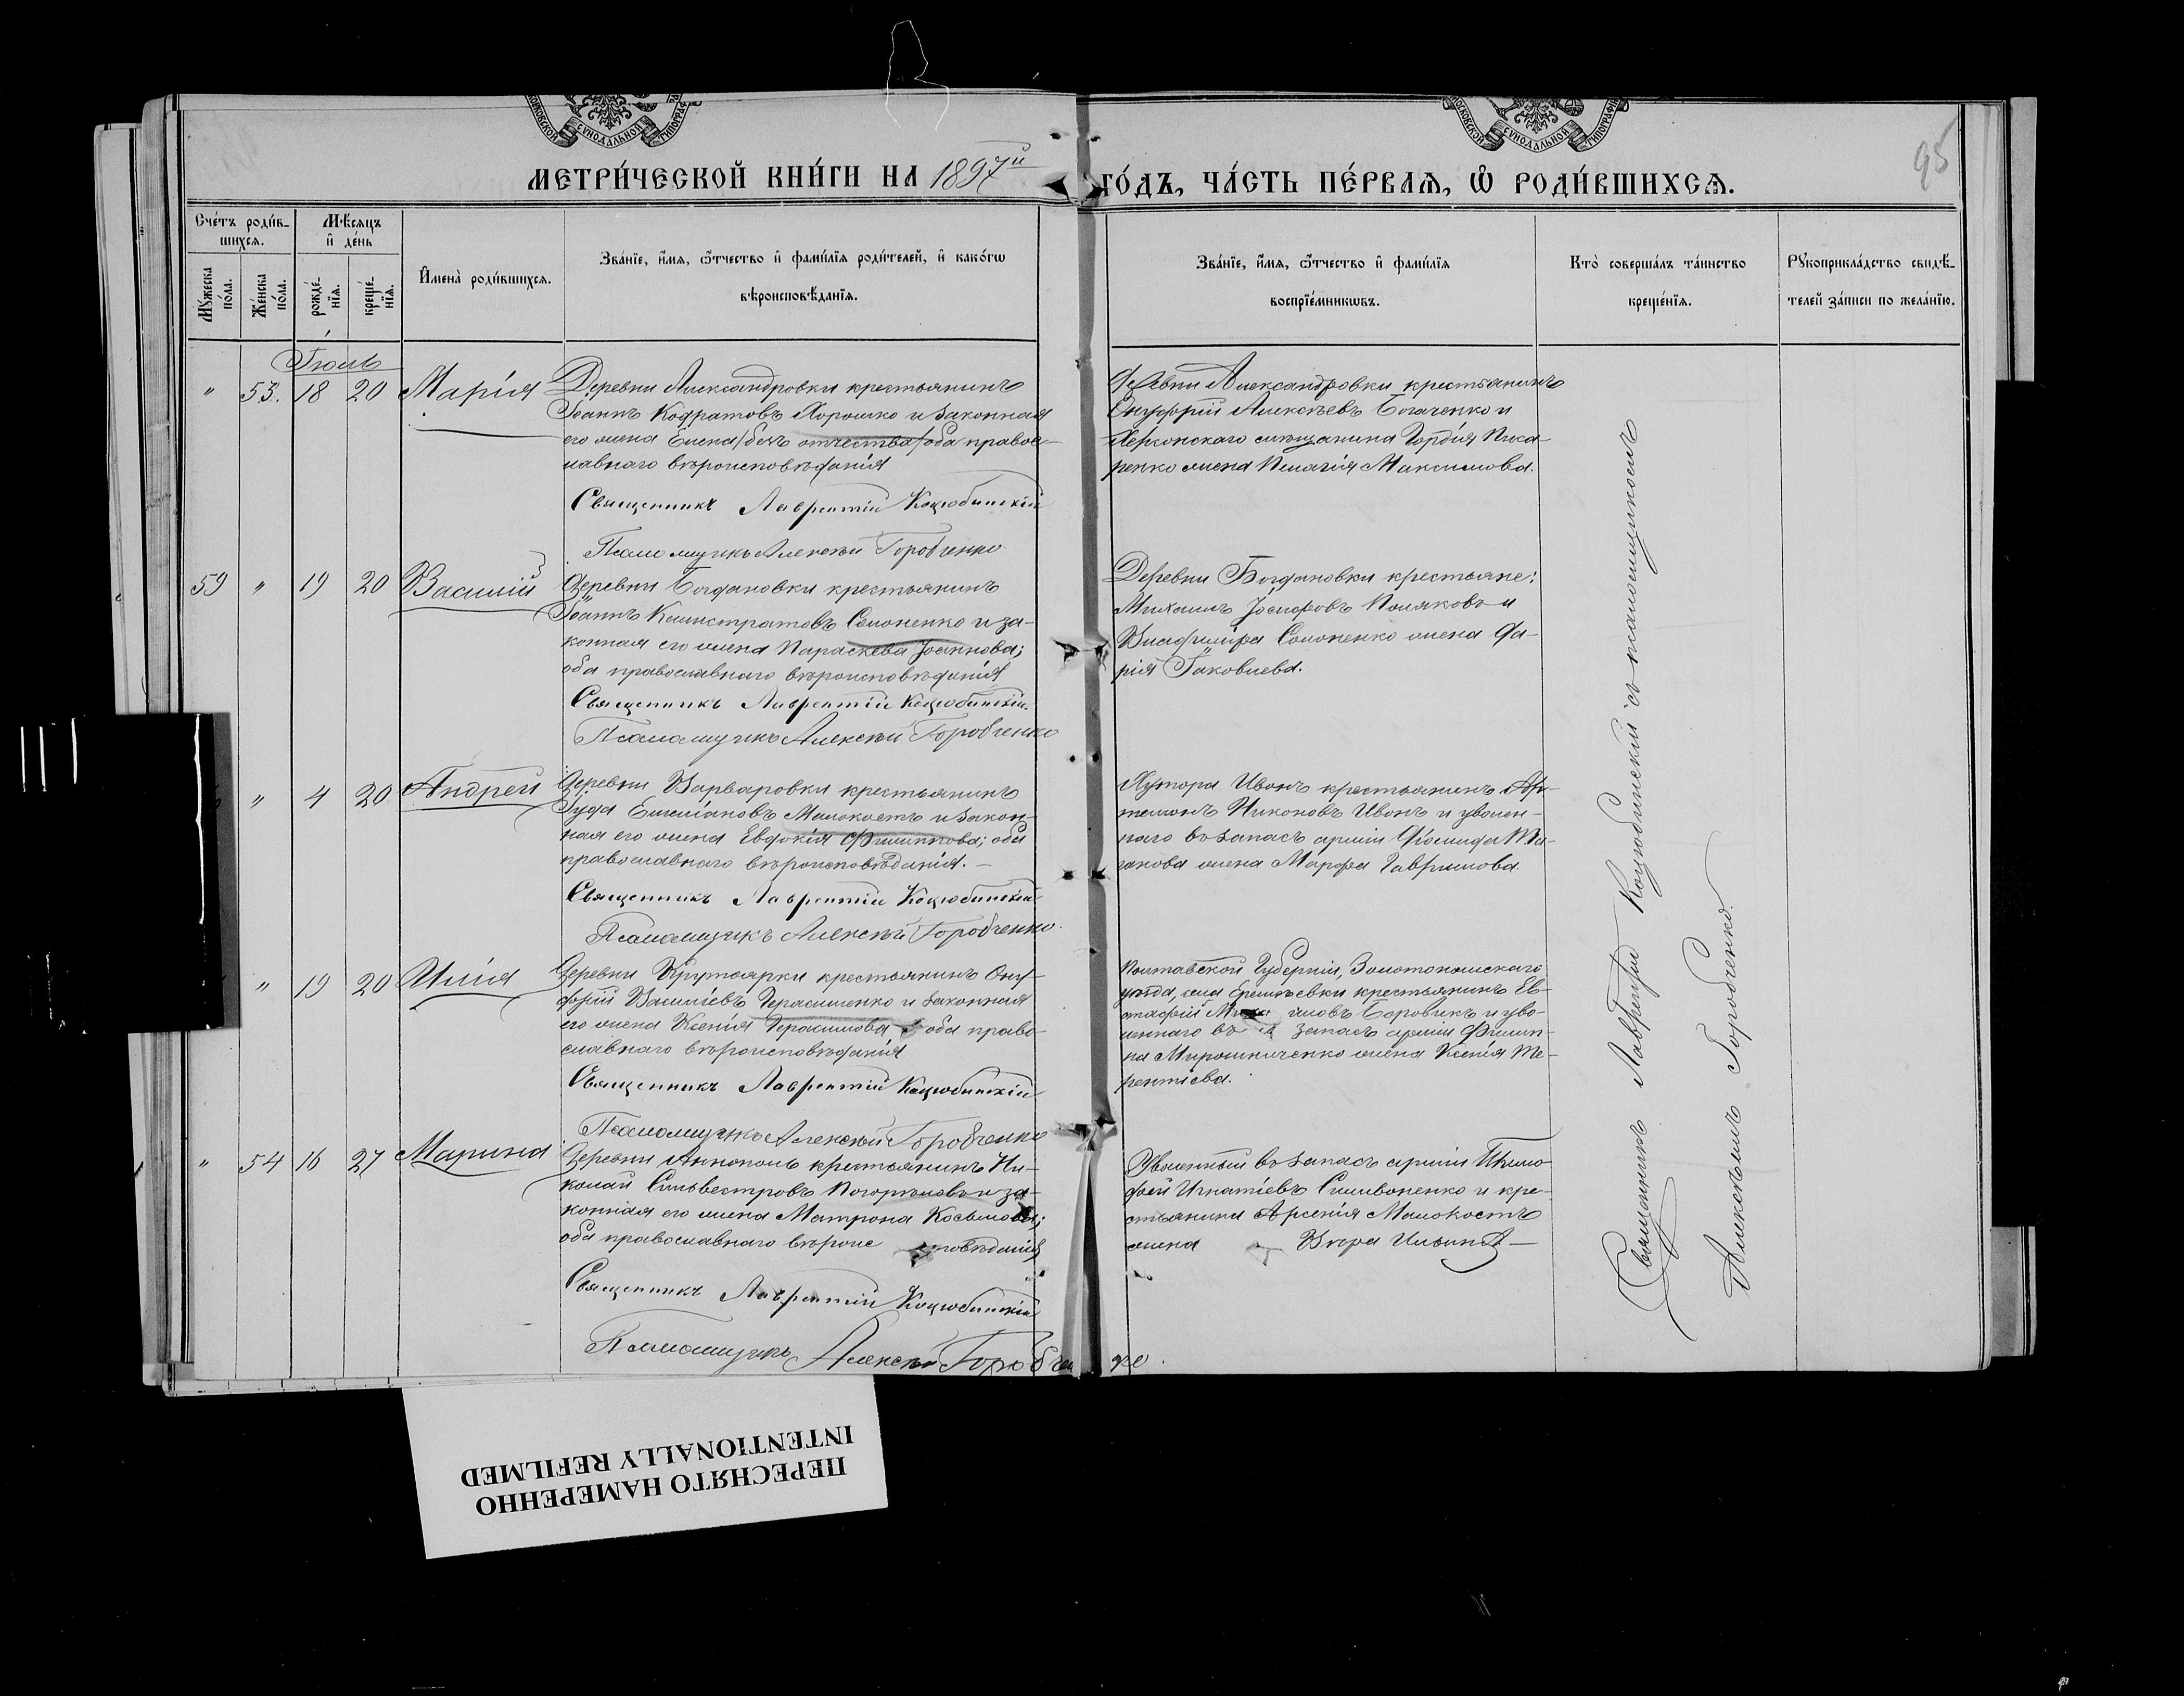 МОСКОВСКОЙ СѴНОДАЛЬНОЙ ТИПОГРАФІИ
МОСКОВСКОЙ СѴНОДАЛЬНОЙ ТИПОГРАФІИ
95
МЕТРИ́ЧЕСКОЙ КНИ́ГИ НА 1897й ГО́ДЪ, ЧА́СТЬ ПЕ́РВАѦ, Ѽ РОДИ́ВШИХСѦ.
Сче́тъ роди́в-
шихсѧ.
Мѣ́сѧцъ
и҆ де́нь
Мꙋ́жеска
по́ла.
Же́нска
по́ла.
рожде́-
нїѧ.
креще́-
нїѧ.
И҆мена̀ роди́вшихсѧ.
Зва́нїе, и҆́мѧ, ѻ҆́тчество и҆ фами́лїѧ роди́телей, и҆ како́гѡ
вѣроисповѣ́данїѧ.
Зва́нїе, и҆́мѧ, ѻ҆́тчество и҆ фами́лїѧ
воспрїе́мникѡвъ.
Кто̀ соверша́лъ та́инство
креще́нїѧ.
Рꙋкоприкла́дство свидѣ́-
телей за́писи по жела́нїю.
Іюль
" 53. 18 20 Марія
Деревни Александровки крестьянинъ
Іоаннъ Кодратовъ Хорошко и законная
его жена Елена /безъ отчества/ оба правос-
лавнаго вѣроисповѣданія
Священникъ Лаврентій Коцюбинскій
Псаломщикъ Алексѣй Горобченко
Деревни Александровки крестьянинъ
Онуфрій Алексѣевъ Богаченко и
Херсонскаго мѣщанина Гордія Писа-
ренко жена Пелагія Максимова.
59 " 19 20 Василій
Деревни Богдановки крестьянинъ
Іоаннъ Калистратовъ Соломенко и за-
конная его жена Параскева Іоаннова;
оба православнаго вѣроисповѣданія
Священникъ Лаврентій Коцюбинскій.
Псаломщикъ Алексѣй Горобченко
Деревни Богдановки крестьяне:
Михаилъ Іосифовъ Поляковъ и
Владиміра жена Да-
рія Іаковлева.
" 4 20 Андрей
Деревни Варваровки крестьянинъ
Іуда Емеліановъ Малокостъ и закон-
ная его жена Евдокія Филиппова; оба
православнаго вѣроисповѣданія. -
Священникъ Лаврентій Коцюбинскій
Псаломщикъ Алексѣй Горобченко.
Хутора Ивонъ крестьянинъ
Никоновъ Ивонъ и уволен-
наго въ запасъ арміи
жена Марфа Гаврилова.
" 19 20 Илія
Деревни Крутоярки крестьянинъ Ону-
фрій Василіевъ Герасименко и законная
его жена Ксенія Герасимова оба право-
славнаго вѣроисповѣданія
Священникъ Лаврентій Коцюбинскій
Псаломщикъ Алексѣй Горобченко
Полтавской Губерніи, Золотоношскаго
уѣзда, села крестьянинъ Ев-
стафій Боровикъ и уво-
леннаго въ запасъ арміи Филип-
па Мирошниченко жена Ксенія Те-
рентіева.
" 54 16 27 Марина
Деревни Аннополь крестьянинъ Ни-
колай Сильвестровъ Погорѣловъ и за-
конная его жена Матрона Косьмова;
оба православнаго вѣроисповѣданія
Священникъ Лаврентій Коцюбинскій
Псаломщикъ Алексѣй Горобченко.
Уволенный въ запасъ арміи Тимо-
фей Игнатіевъ Симвоненко и кре-
стьянина Арсенія Малокостъ
жена Вѣра Ильина
Священникъ Лаврентій Коцюбинскій съ псаломщикомъ
Алексѣемъ Горобченко.
ПЕРЕСНЯТО НАМЕРЕННО
INTENTIONALLY REFILMED